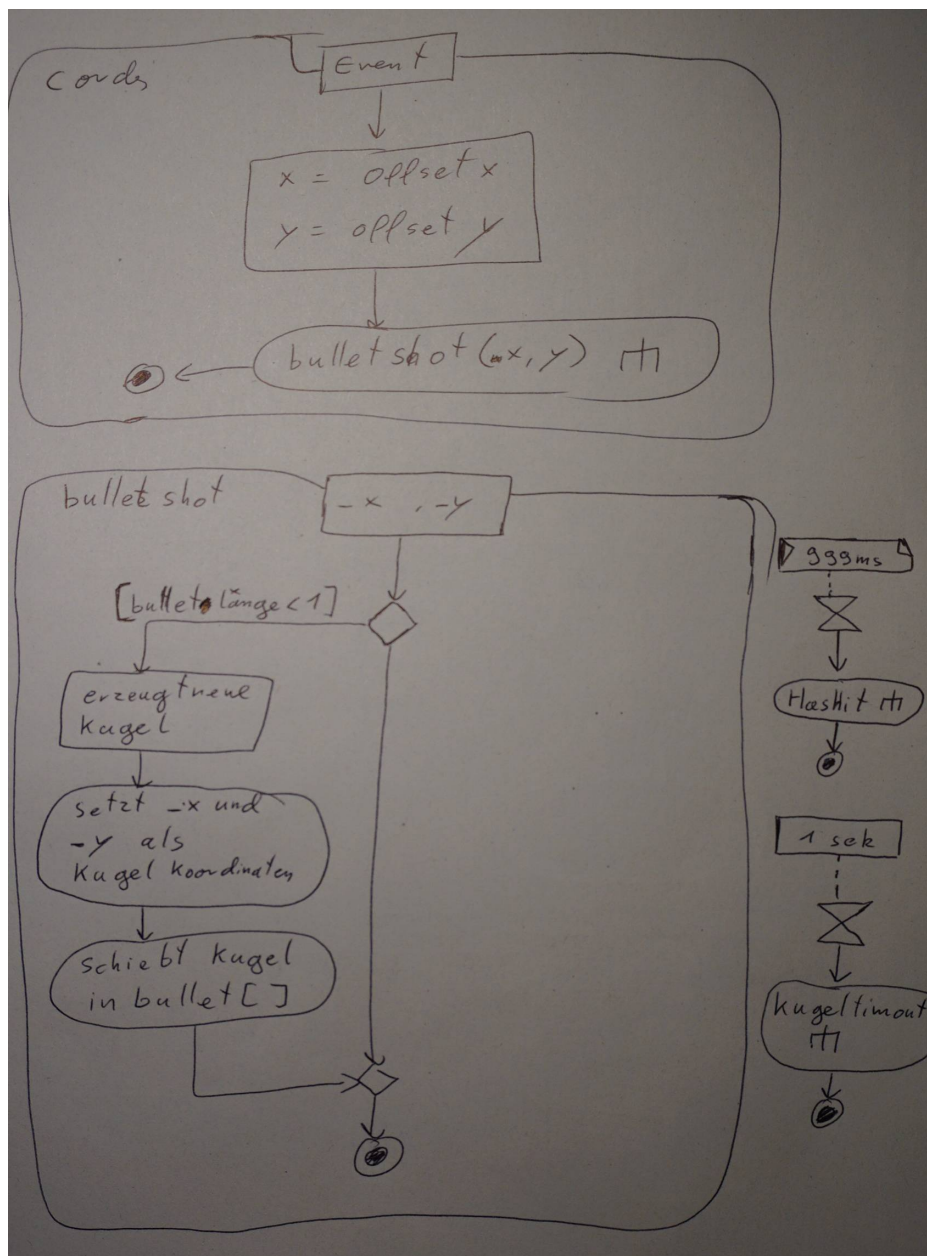 cords
Event
x = offset x
y = offset y
bulletshot(_x, y)
bullet shot
-x , -y
[bullet länge < 1]
erzeugt neue
Kugel
setzt -x und
-y als
Kugel koordinaten
schiebt Kugel
in bullet [ ]
999ms
HasHit
1 sek
Kugeltimout